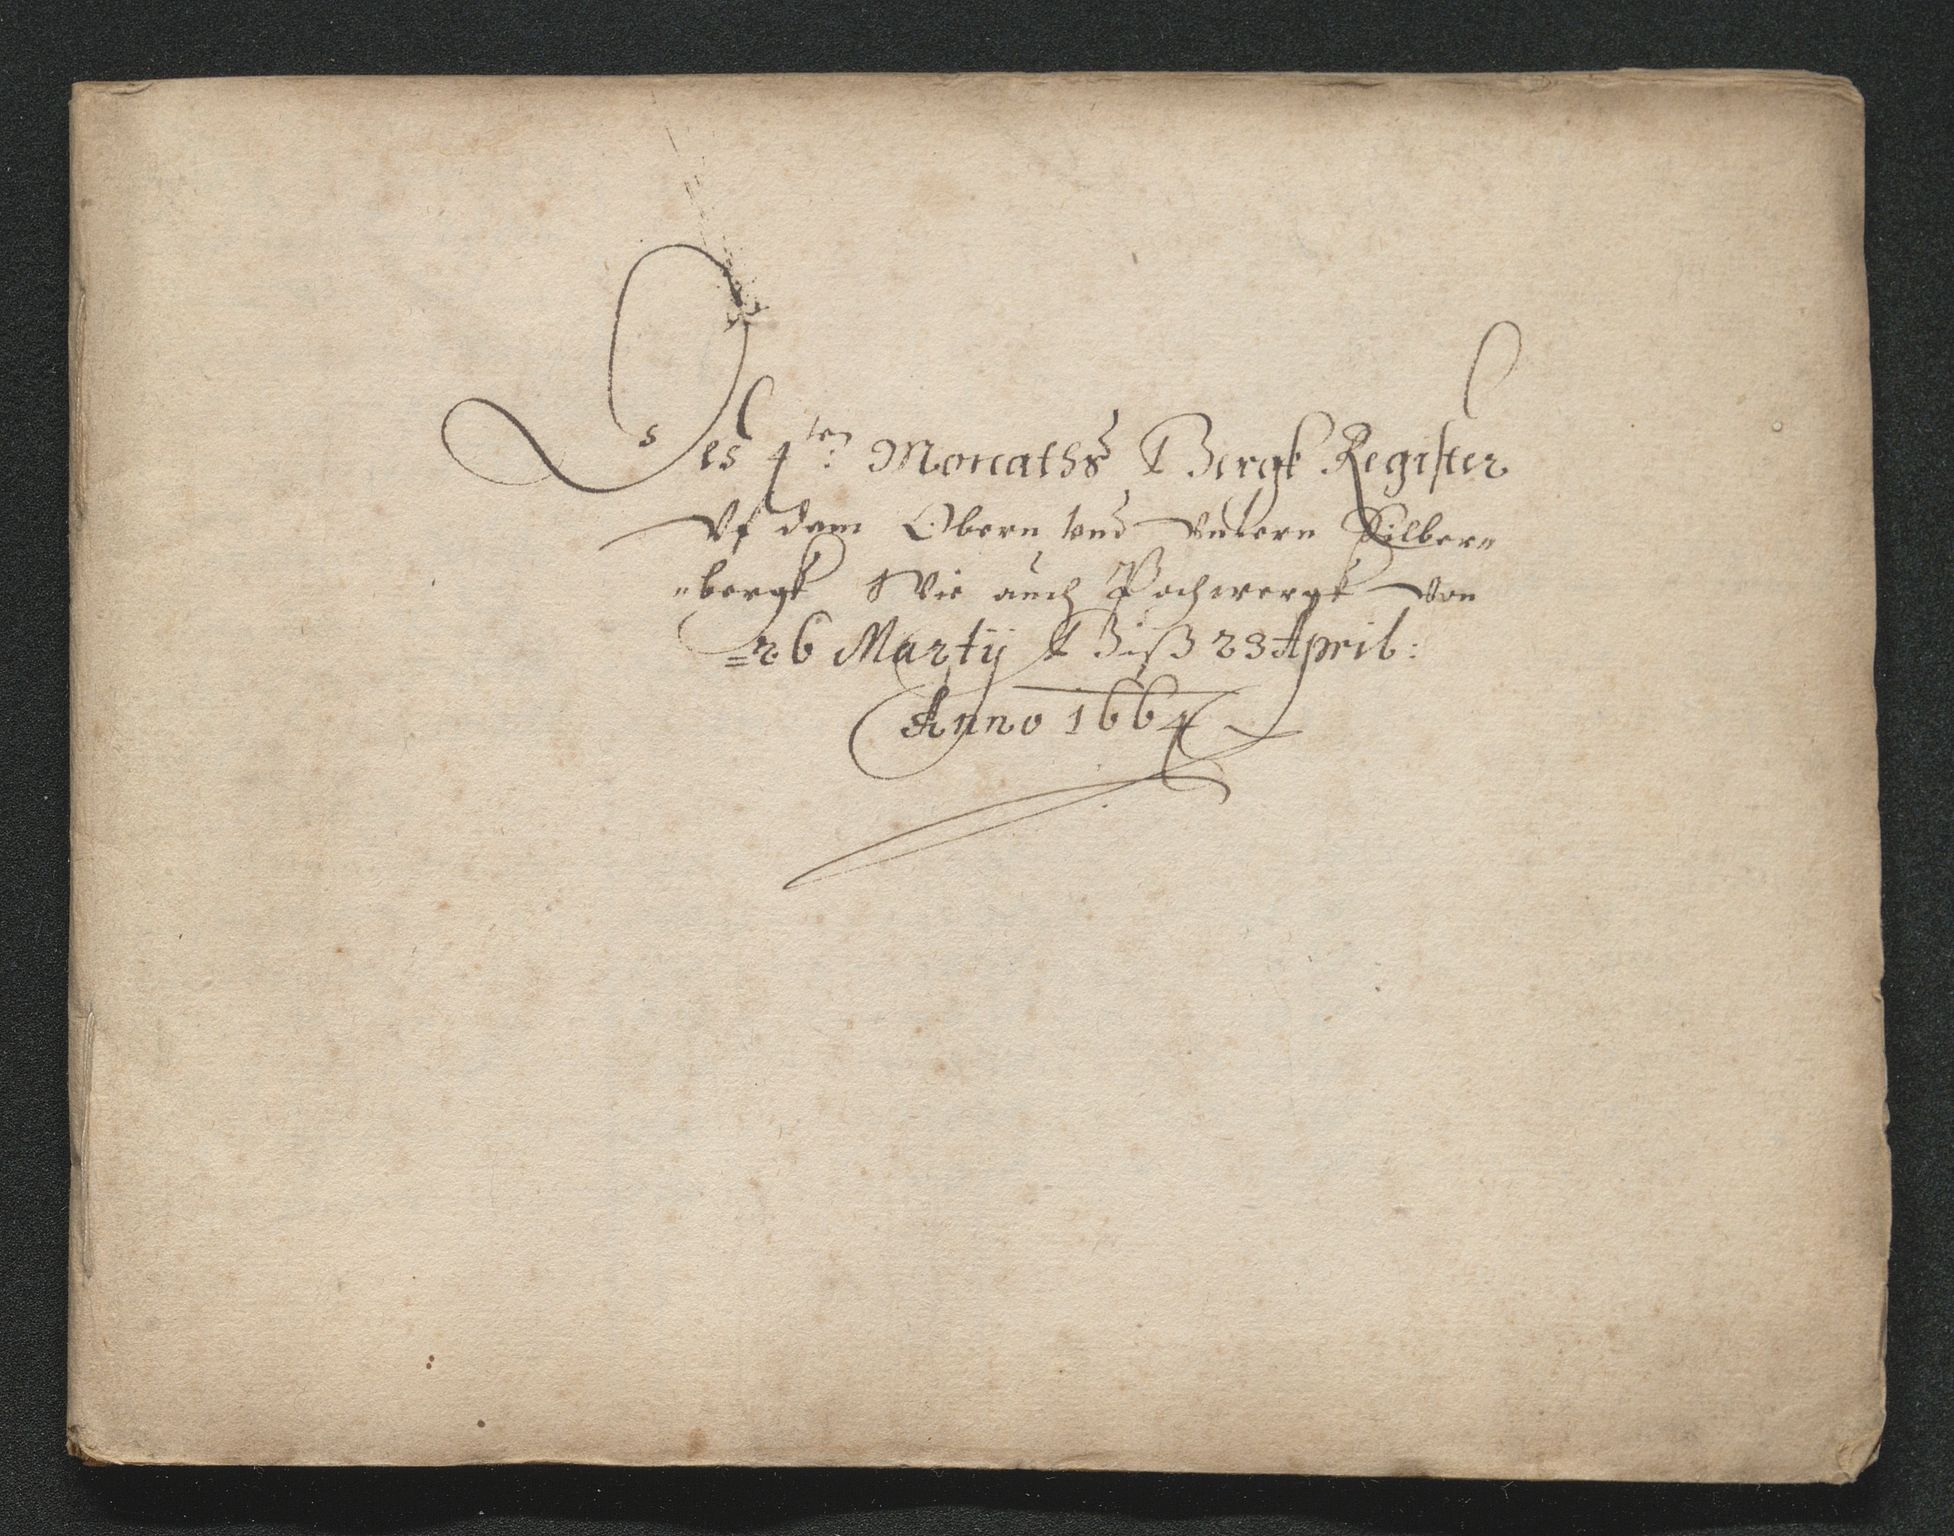 Des 4ten: Monaths Bergk Register
Uf dem Obern und Untern Silber=
=bergk Wie auch Pochwergk von
=26 Martij Biß 23 April:
Anno 1664